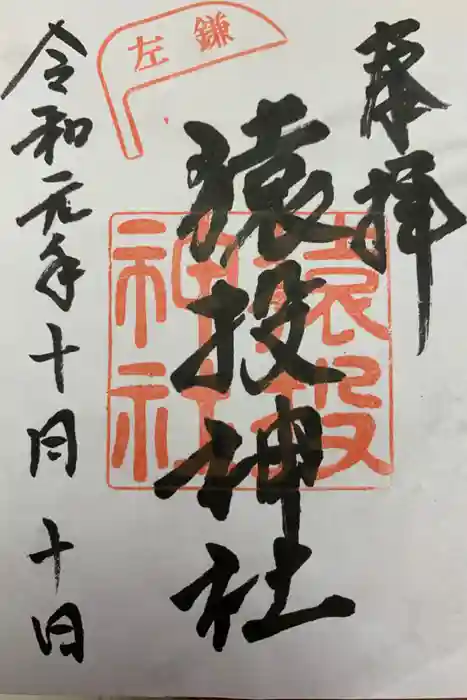 奉拝
猿投神社
令和元年十月十日
左鎌
猿投
神社